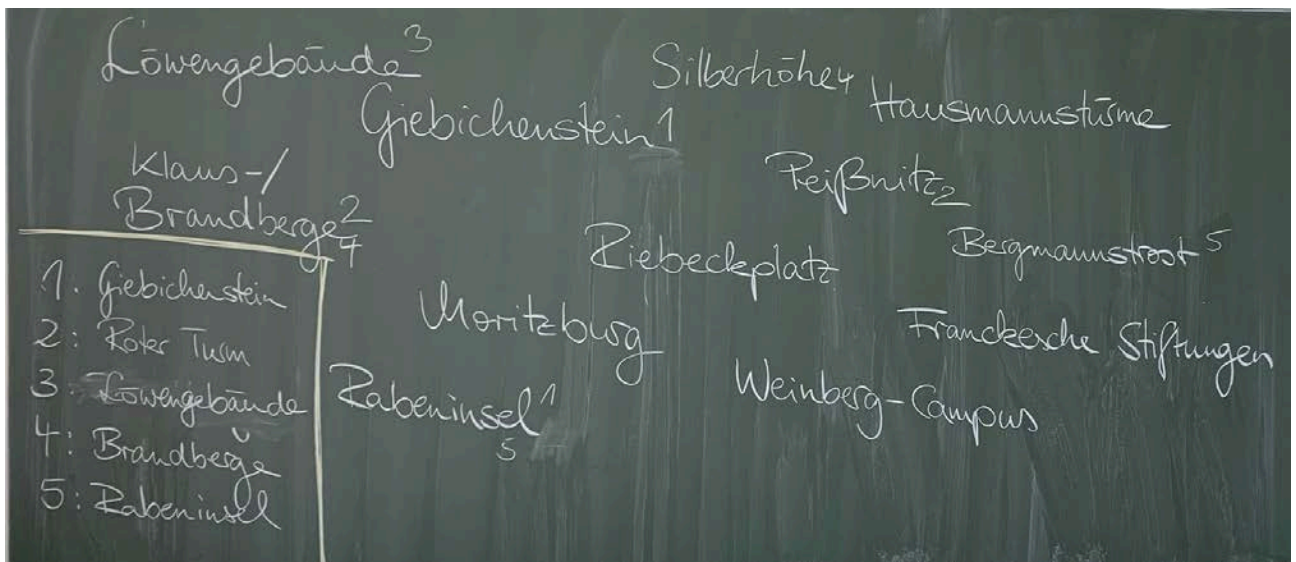 Löwengebäude 3
Silberhöhe 4
Hausmannstürme
Giebichenstein 1
Klaus-/
Brandberge 2
4
Peißnitz 2
Riebeckplatz
Bergmannstrost 5
Moritzburg
Franckesche Stiftungen
Rabeninsel 1
5
Weinberg-Campus
1. Giebichenstein
2: Roter Turm
3: Löwengebäude
4: Brandberge
5: Rabeninsel